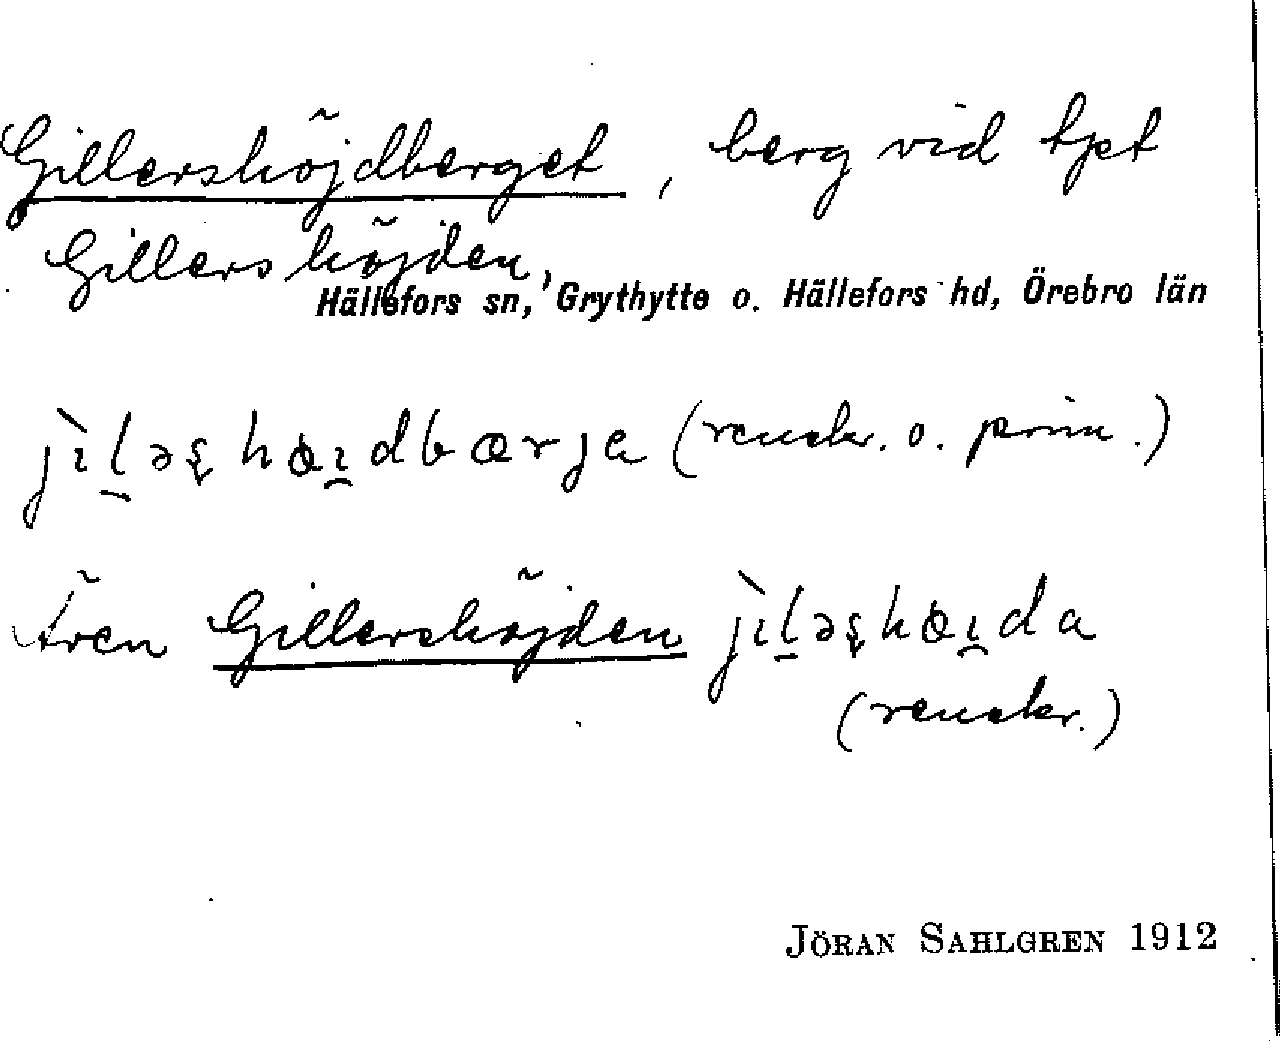 Gillershöjdberget, berg vid tpt
Gillershöjden,
Hällefors sn, Grythytte o. Hällefors hd, Örebro län
jìləʂhœɪdbærja (renskr. o. prim.)
Även Gillershöjden jìləʂhœɪda
(renskr.)
JÖRAN SAHLGREN 1912